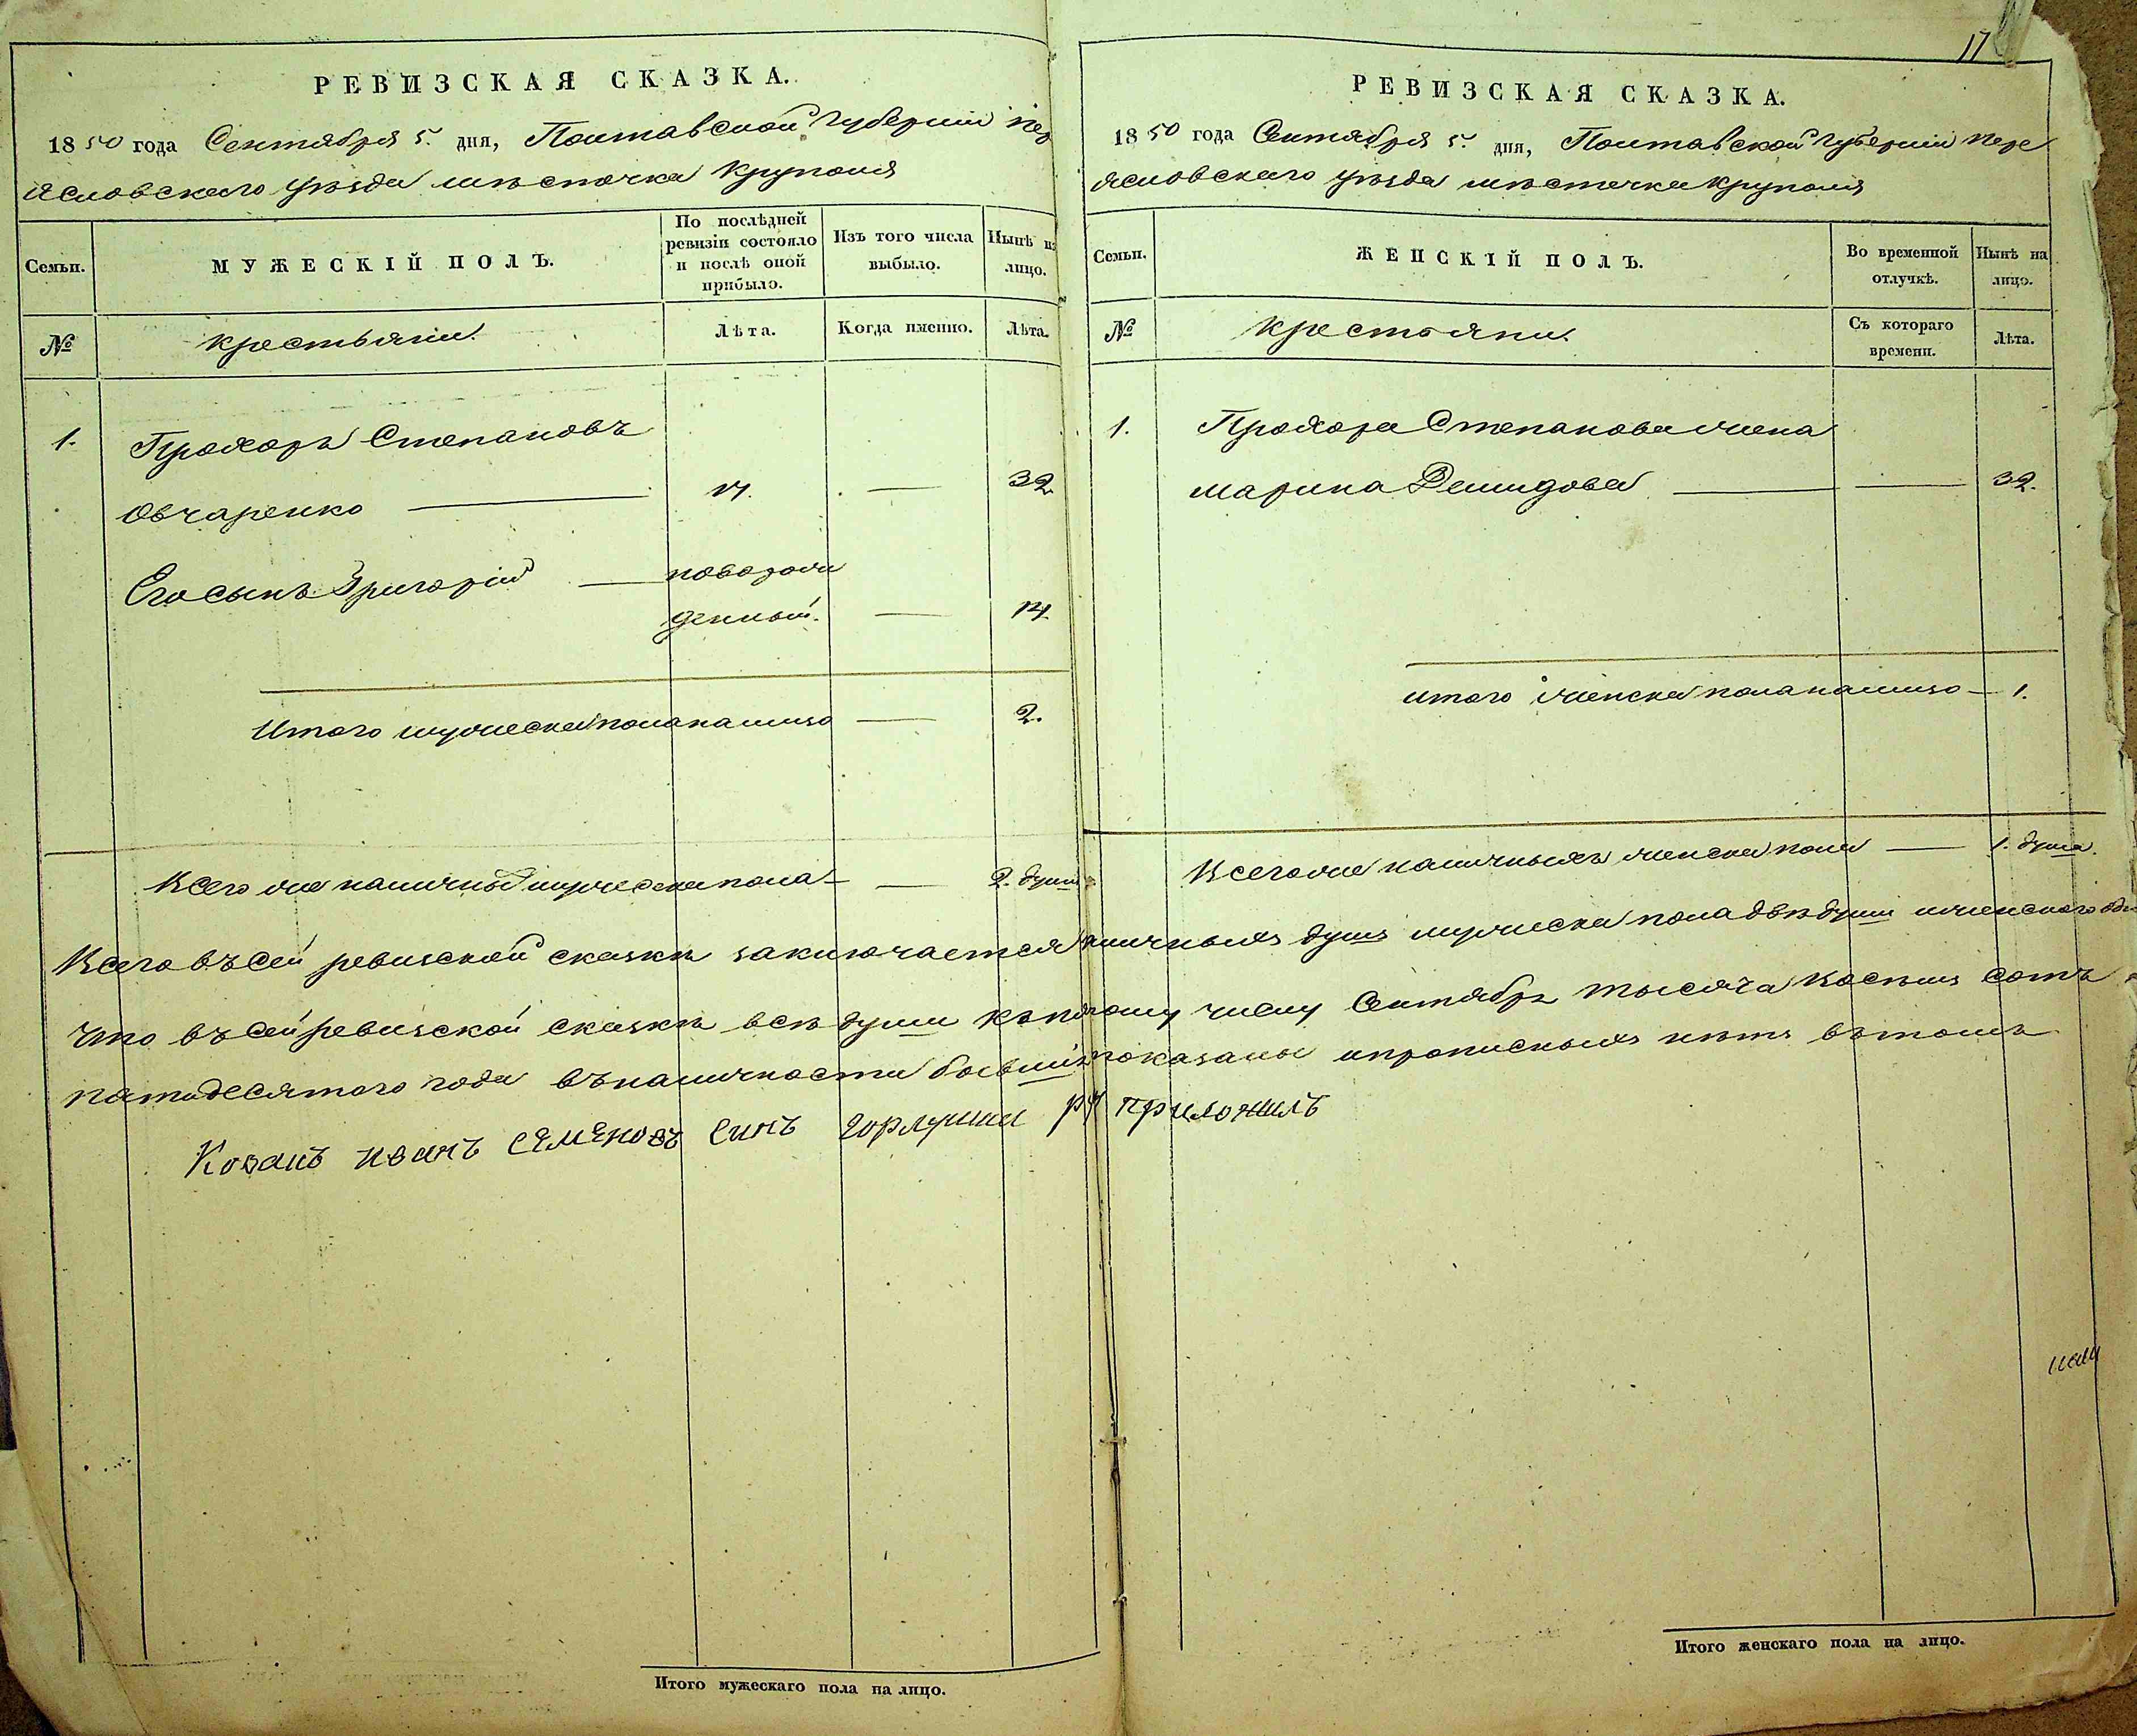 РЕВИЗСКАЯ СКАЗКА.
1850 года Сентября 5. дня, Полтавской Губерніи Пер
яславского уѣзда мѣсточка Круполя
Семьи.
МУЖЕСКІЙ ПОЛЪ.
По послѣдней ревизіи состояло и послѣ оной прибыло.
Изъ того числа выбыло.
Нынѣ на лицо.
№
крестьяни.
Лѣта.
Когда именно.
Лѣта.
1.
Прохоръ Степановъ
Овчаренко
32
Его сынъ Григорій
новорож
денный.
14.
Итого мужеска пола налицо 2.
Всего же наличных мужеска пола 2. души
РЕВИЗСКАЯ СКАЗКА.
17
1850 года Сентября 5. дня, Полтавской Губерніи Пере
яславского уѣзда мѣстечка Круполя
Семьи.
ЖЕНСКІЙ ПОЛЪ.
Во временной отлучкѣ.
Нынѣ на лицо.
№
крестьяни.
Съ котораго времени.
Лѣта.
1.
Прохора Степанова жена
марина Демидова 32.
итого женска пола налицо 1.
Всего же наличныхъ женска пола 1. душа.
Всего въ сей ревизской сказкѣ заключается наличныхъ душъ мужеска пола двѣ души и женского
Что въ сей ревизской сказкѣ всѣ души къ пятому числу Сентября тысяча восѣмъ сотъ
пятидесятого года въ наличности бывшіи показаны и прописныхъ нѣтъ въ томъ
Козакъ иванъ Семеновъ синъ ру приложилъ
Итого мужескаго пола на лицо.
Итого женскаго пола на лицо.